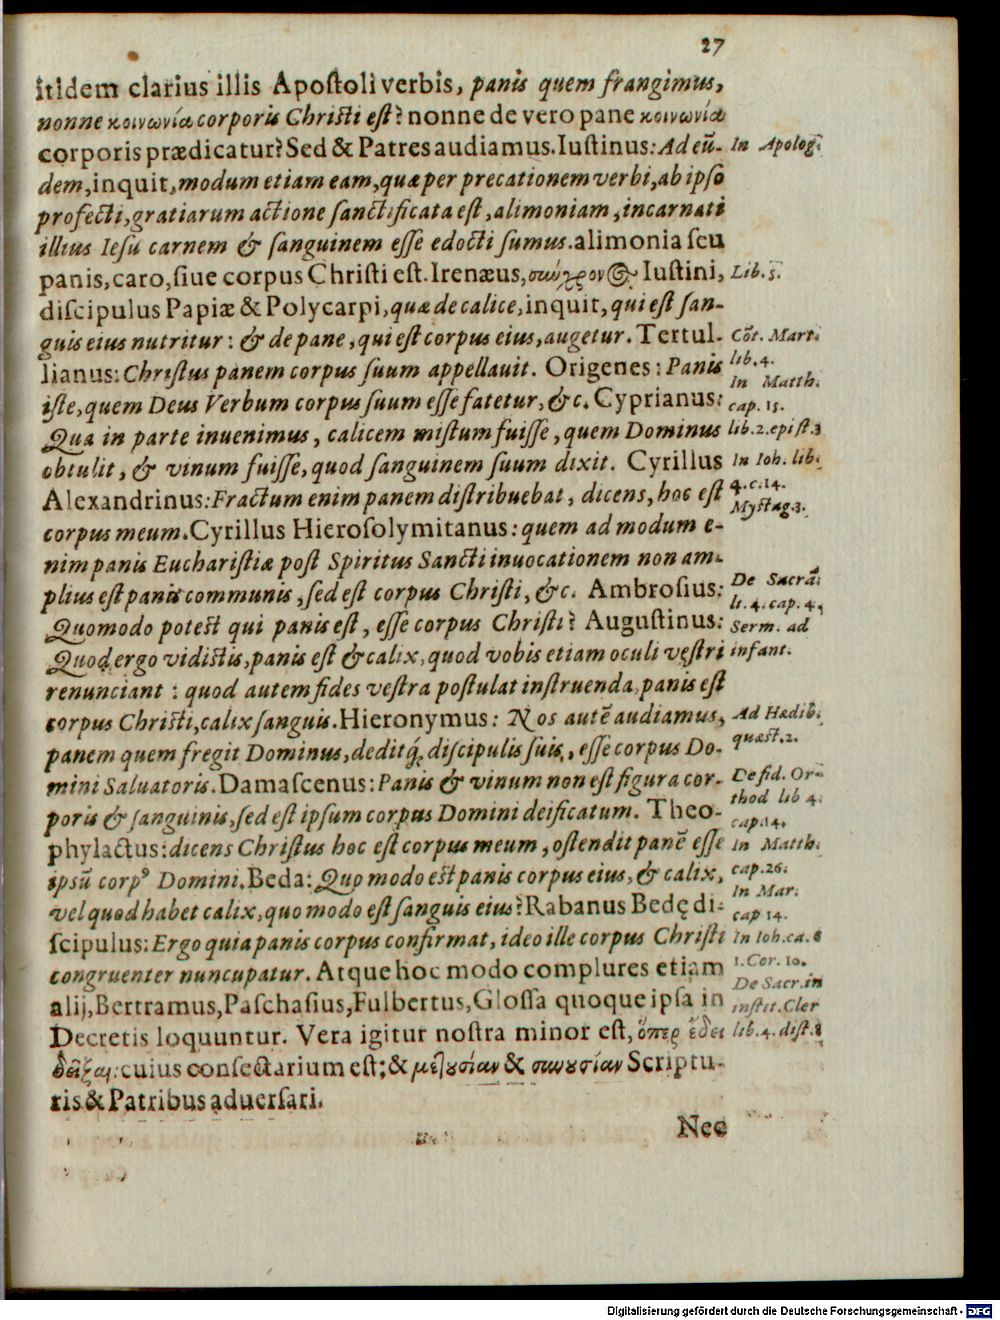 27
itidem clarius illis Apostoli verbis, panis quem frangimus,
nonne κοινωνία corporis Christi est? nonne de vero pane κοινωνία
corporis prædicatur? Sed & Patres audiamus. Iustinus: Ad eũ-
In Apolog.
dem, inquit, modum etiam eam, quæ per precationem verbi, ab ipso
profecti, gratiarum actione sanctificata est, alimoniam, incarnati
illius Iesu carnem & sanguinem esse edocti sumus. alimonia seu
panis, caro, siue corpus Christi est. Irenæus, σύγχρονος Iustini,
Lib. 5.
discipulus Papiæ & Polycarpi, quæ de calice, inquit, qui est san-
guis eius nutritur: & de pane, qui est corpus eius, augetur. Tertul-
Cõt. Mart.
lianus: Christus panem corpus suum appellauit. Origenes: Panis
lib. 4.
In Matth.
iste, quem Deus Verbum corpus suum esse fatetur, &c. Cyprianus:
cap. 15.
Qua in parte inuenimus, calicem mistum fuisse, quem Dominus
lib. 2. epist. 3
obtulit, & vinum fuisse, quod sanguinem suum dixit. Cyrillus
In Ioh. lib.
Alexandrinus: Fractum enim panem distribuebat, dicens, hoc est
4. c. 14.
Mystag. 3.
corpus meum. Cyrillus Hierosolymitanus: quem ad modum e-
nim panis Eucharistiæ post Spiritus Sancti inuocationem non am-
plius est panis communis, sed est corpus Christi, &c. Ambrosius:
De Sacrã.
li. 4. cap. 4.
Quomodo potest qui panis est, esse corpus Christi? Augustinus:
Serm. ad
Quod ergo vidistis, panis est & calix, quod vobis etiam oculi vęstri
infant.
renunciant: quod autem fides vestra postulat instruenda, panis est
corpus Christi, calix sanguis. Hieronymus: Nos autẽ audiamus,
Ad Hedib.
panem quem fregit Dominus, deditq́; discipulis suis, esse corpus Do-
quæst. 2.
mini Saluatoris. Damascenus: Panis & vinum non est figura cor-
De fid. Or-
poris & sanguinis, sed est ipsum corpus Domini deificatum. Theo-
thod lib 4.
cap. 14.
phylactus: dicens Christus hoc est corpus meum, ostendit panẽ esse
In Matth.
ipsũ corpꝰ Domini. Beda: Quo modo est panis corpus eius, & calix,
cap. 26.
In Mar.
vel quod habet calix, quo modo est sanguis eius? Rabanus Bedę di-
cap 14.
scipulus: Ergo quia panis corpus confirmat, ideo ille corpus Christi
In Ioh. ca. 6
congruenter nuncupatur. Atque hoc modo complures etiam
1. Cor. 10.
De Sacr. in
alij, Bertramus, Paschasius, Fulbertus, Glossa quoque ipsa in
instit. Cler
Decretis loquuntur. Vera igitur nostra minor est, ὅπερ ἔδει
lib. 4. dist. 8
δεῖξαι: cuius consectarium est; & μετουσίαν & συνουσίαν Scriptu-
ris & Patribus aduersari.
Nec
Digitalisierung gefördert durch die Deutsche Forschungsgemeinschaft - DFG